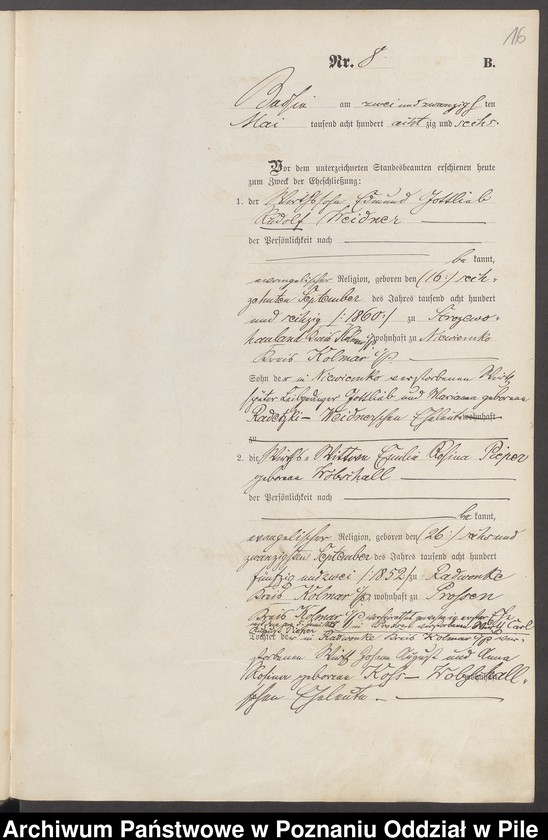 16
Nr. 8 B.
am zwei und zwanzigsten
Mai tausend acht hundert achtzig und sechs.
Vor dem unterzeichneten Standesbeamten erschienen heute
zum Zweck der Eheschließung:
1. der Wirthssohn Edmund Gottlieb
Rudolf Weidner
der Persönlichkeit nach
bekannt,
evangelischer Religion, geboren den (16:) sech-
zehnten September des Jahres tausend acht hundert
und sechzig /:1860:/ zu
hauland Kreis wohnhaft zu Niewiemko
Kreis Kolmar i/P.
Sohn der in Niewiemko verstorbenen Wirth,
später Leibgedinger Gottlieb und Marianna geborene
Radetzki – Weidnerschen Eheleute wohnhaft
zu
2. die Wirths-Wittwe Emilie Rosina Pieper
geborene Wobschall
der Persönlichkeit nach
bekannt,
evangelischer Religion, geboren den (26:) sechs und
zwanzigsten September des Jahres tausend acht hundert
fünfzig und zwei /:1852/ zu Radwonke
Kreis Kolmar i/P. wohnhaft zu Prossen
Kreis Kolmar i/P. in erster Ehe
Carl
Pieper
Tochter der in Radwonke Kreis Kolmar i/P. ver-
storbenen Wirth Johann August und Anna
Rosina geborene Kohs – Wobschall-
schen Eheleute.
Archiwum Państwowe w Poznaniu Oddział w Pile